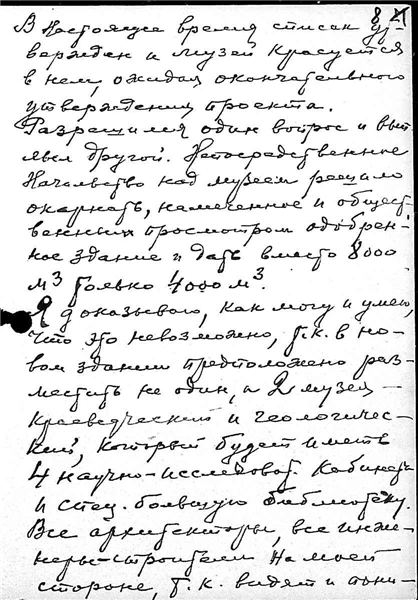 84
В настоящее время список ут-
вержден и музей красуется
в нем, ожидая окончательного
утверждения проекта.
Разрешился один вопрос и вып
лыл другой. Непосредственное
Начальство над музеем решило
окарнать, намеченное и общест-
венным просмотром одобрен-
ное здание и дать вместо 8000
м³ только 4000 м³.
Я доказываю, как могу и умею,
что это невозможно, т.к. в но-
вом здании предположено раз-
местить не один, а 2 музея —
Краеведческий и геологичес-
кий, который будет иметь
4 научно-исследоват. кабинета
и спец. большую библиотеку.
Все архитекторы, все инже-
неры-строители на моей
стороне, т.к. видят и пони-